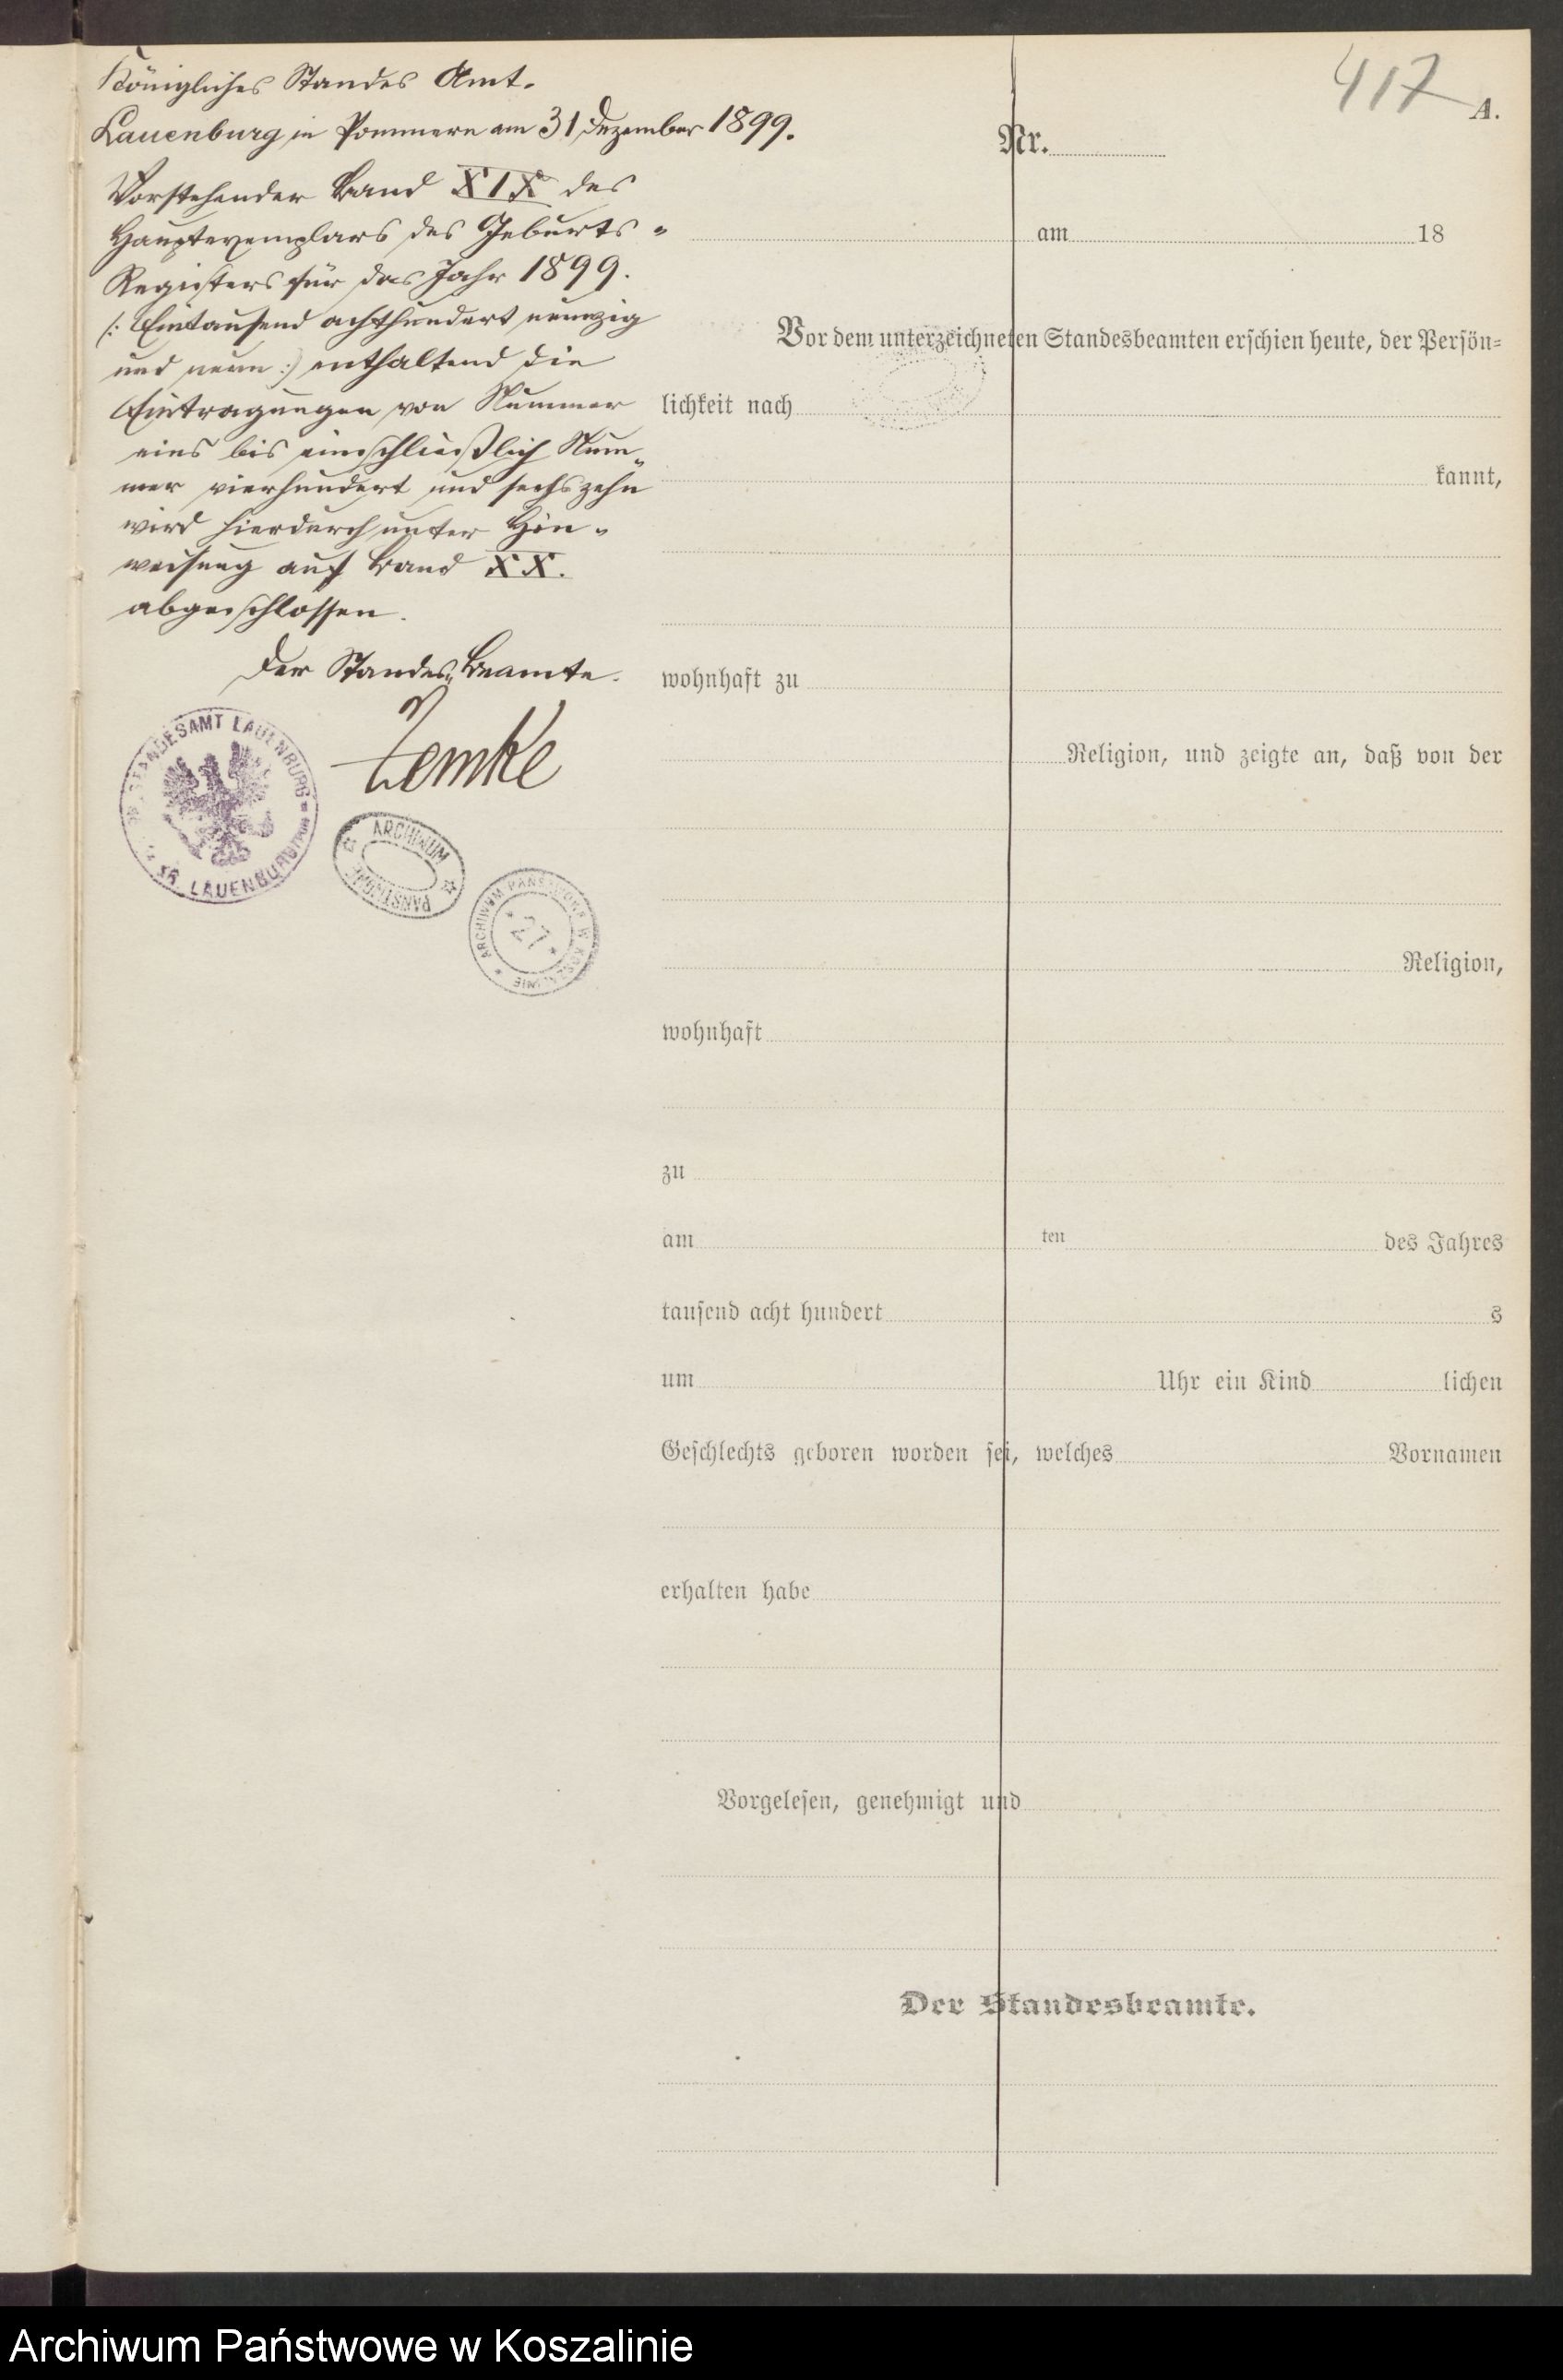 Königliches Standes Amt.
Lauenburg in Pommern am 31 Dezember 1899.
Vorstehender Band XIX des
Hauptexemplars des Geburts-
Registers für das Jahr 1899.
(: Eintausend achthundert neunzig
und neun :) enthaltend die
Eintragungen von Nummer
eins bis einschließlich Num-
mer vierhundert und sechszehn
wird hierdurch unter Hin-
weisung auf Band XX.
abgeschlossen.
Der Standes-Beamte.
Zemke
STANDESAMT LAUENBURG
KR. LAUENBURG
ARCHIWUM
PAŃSTWOWE
ARCHIWUM PAŃSTWOWE W KOSZALINIE
* 27 *
417
A.
Nr.
am 18
Vor dem unterzeichneten Standesbeamten erschien heute, der Persön-
lichkeit nach
kannt,
wohnhaft zu
Religion, und zeigte an, daß von der
Religion,
wohnhaft
zu
am ten des Jahres
tausend acht hundert s
um Uhr ein Kind lichen
Geschlechts geboren worden sei, welches Vornamen
erhalten habe
Vorgelesen, genehmigt und
Der Standesbeamte.
Archiwum Państwowe w Koszalinie